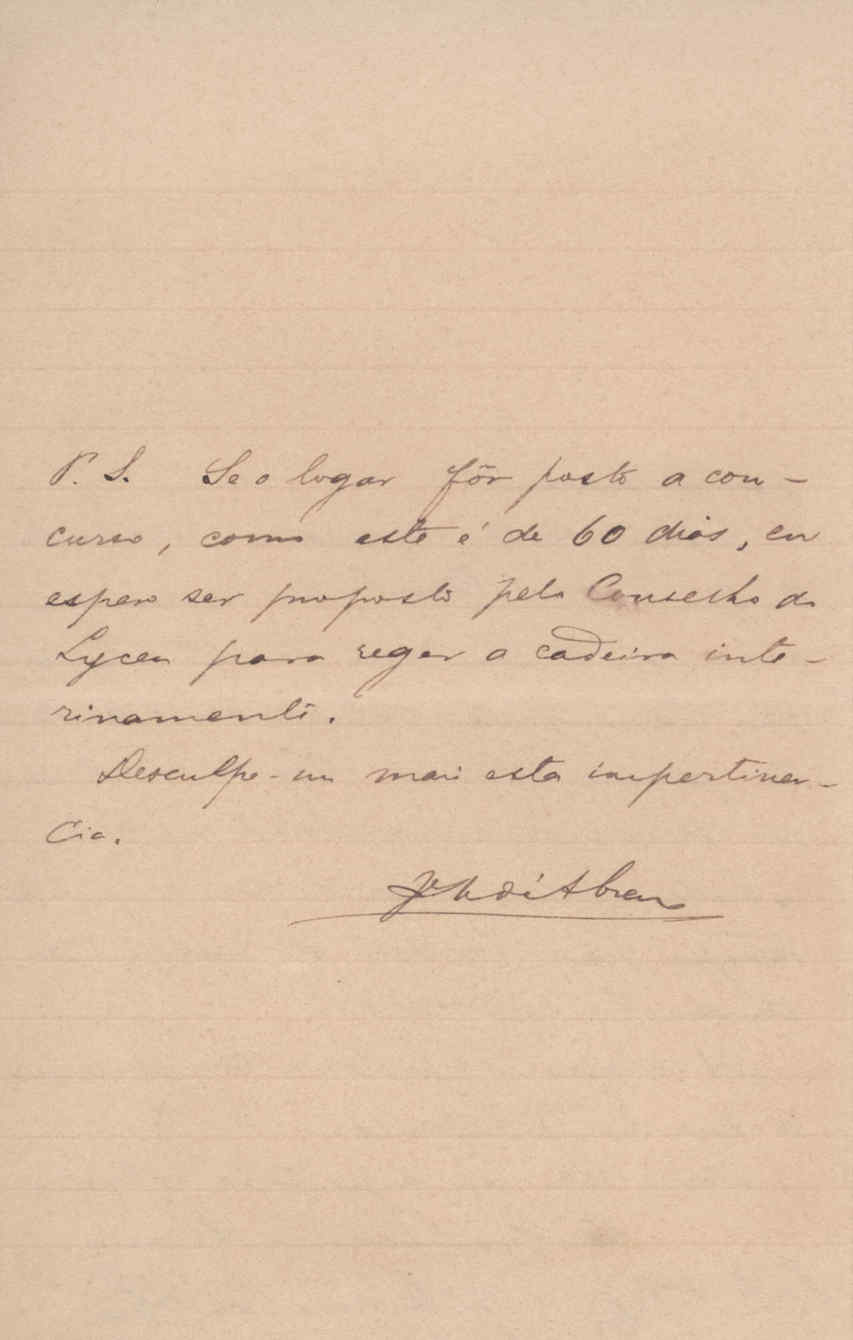 P. S. Se o logar fôr posto a con-
curso, como este é de 60 dias, eu
espero ser proposto pelo Conselho do
Lyceu para reger a cadeira inte-
rinamente.
Desculpe-me mais esta impertinen-
cia.
Abreu